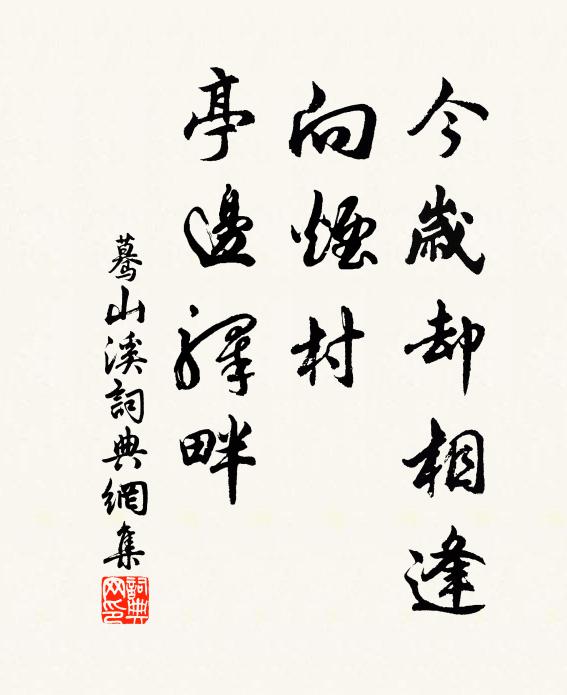 今歲却相逢
向煙村
亭邊驛畔
驀山溪詞典網集
詞典網印